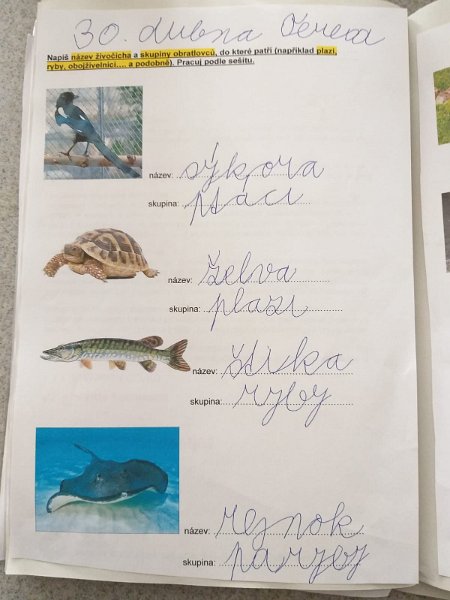 30. dubna Tereza
Napiš název živočicha a skupiny obratlovců, do které patří (například plazi,
ryby, obojživelníci.... a podobně). Pracuj podle sešitu.
název: sýkora
skupina: ptáci
název: želva
skupina: plazi
název: štika
skupina: ryby
název: rejnok
skupina: paryby